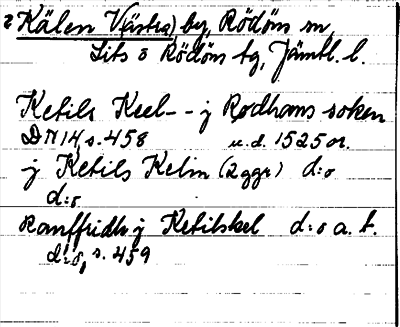 2 Kälen V(ästra) by, Rödöns sn,
Lits o Rödöns tg, Jämtl. l.
Ketils Keel- - j Rødhams soken
DN 14, s. 458 u.d. 1525 or.
j Ketils Kelin (2 ggr) d:o
d:o
Ranffridh j Ketilskel d:o a. t.
d:o, s. 459